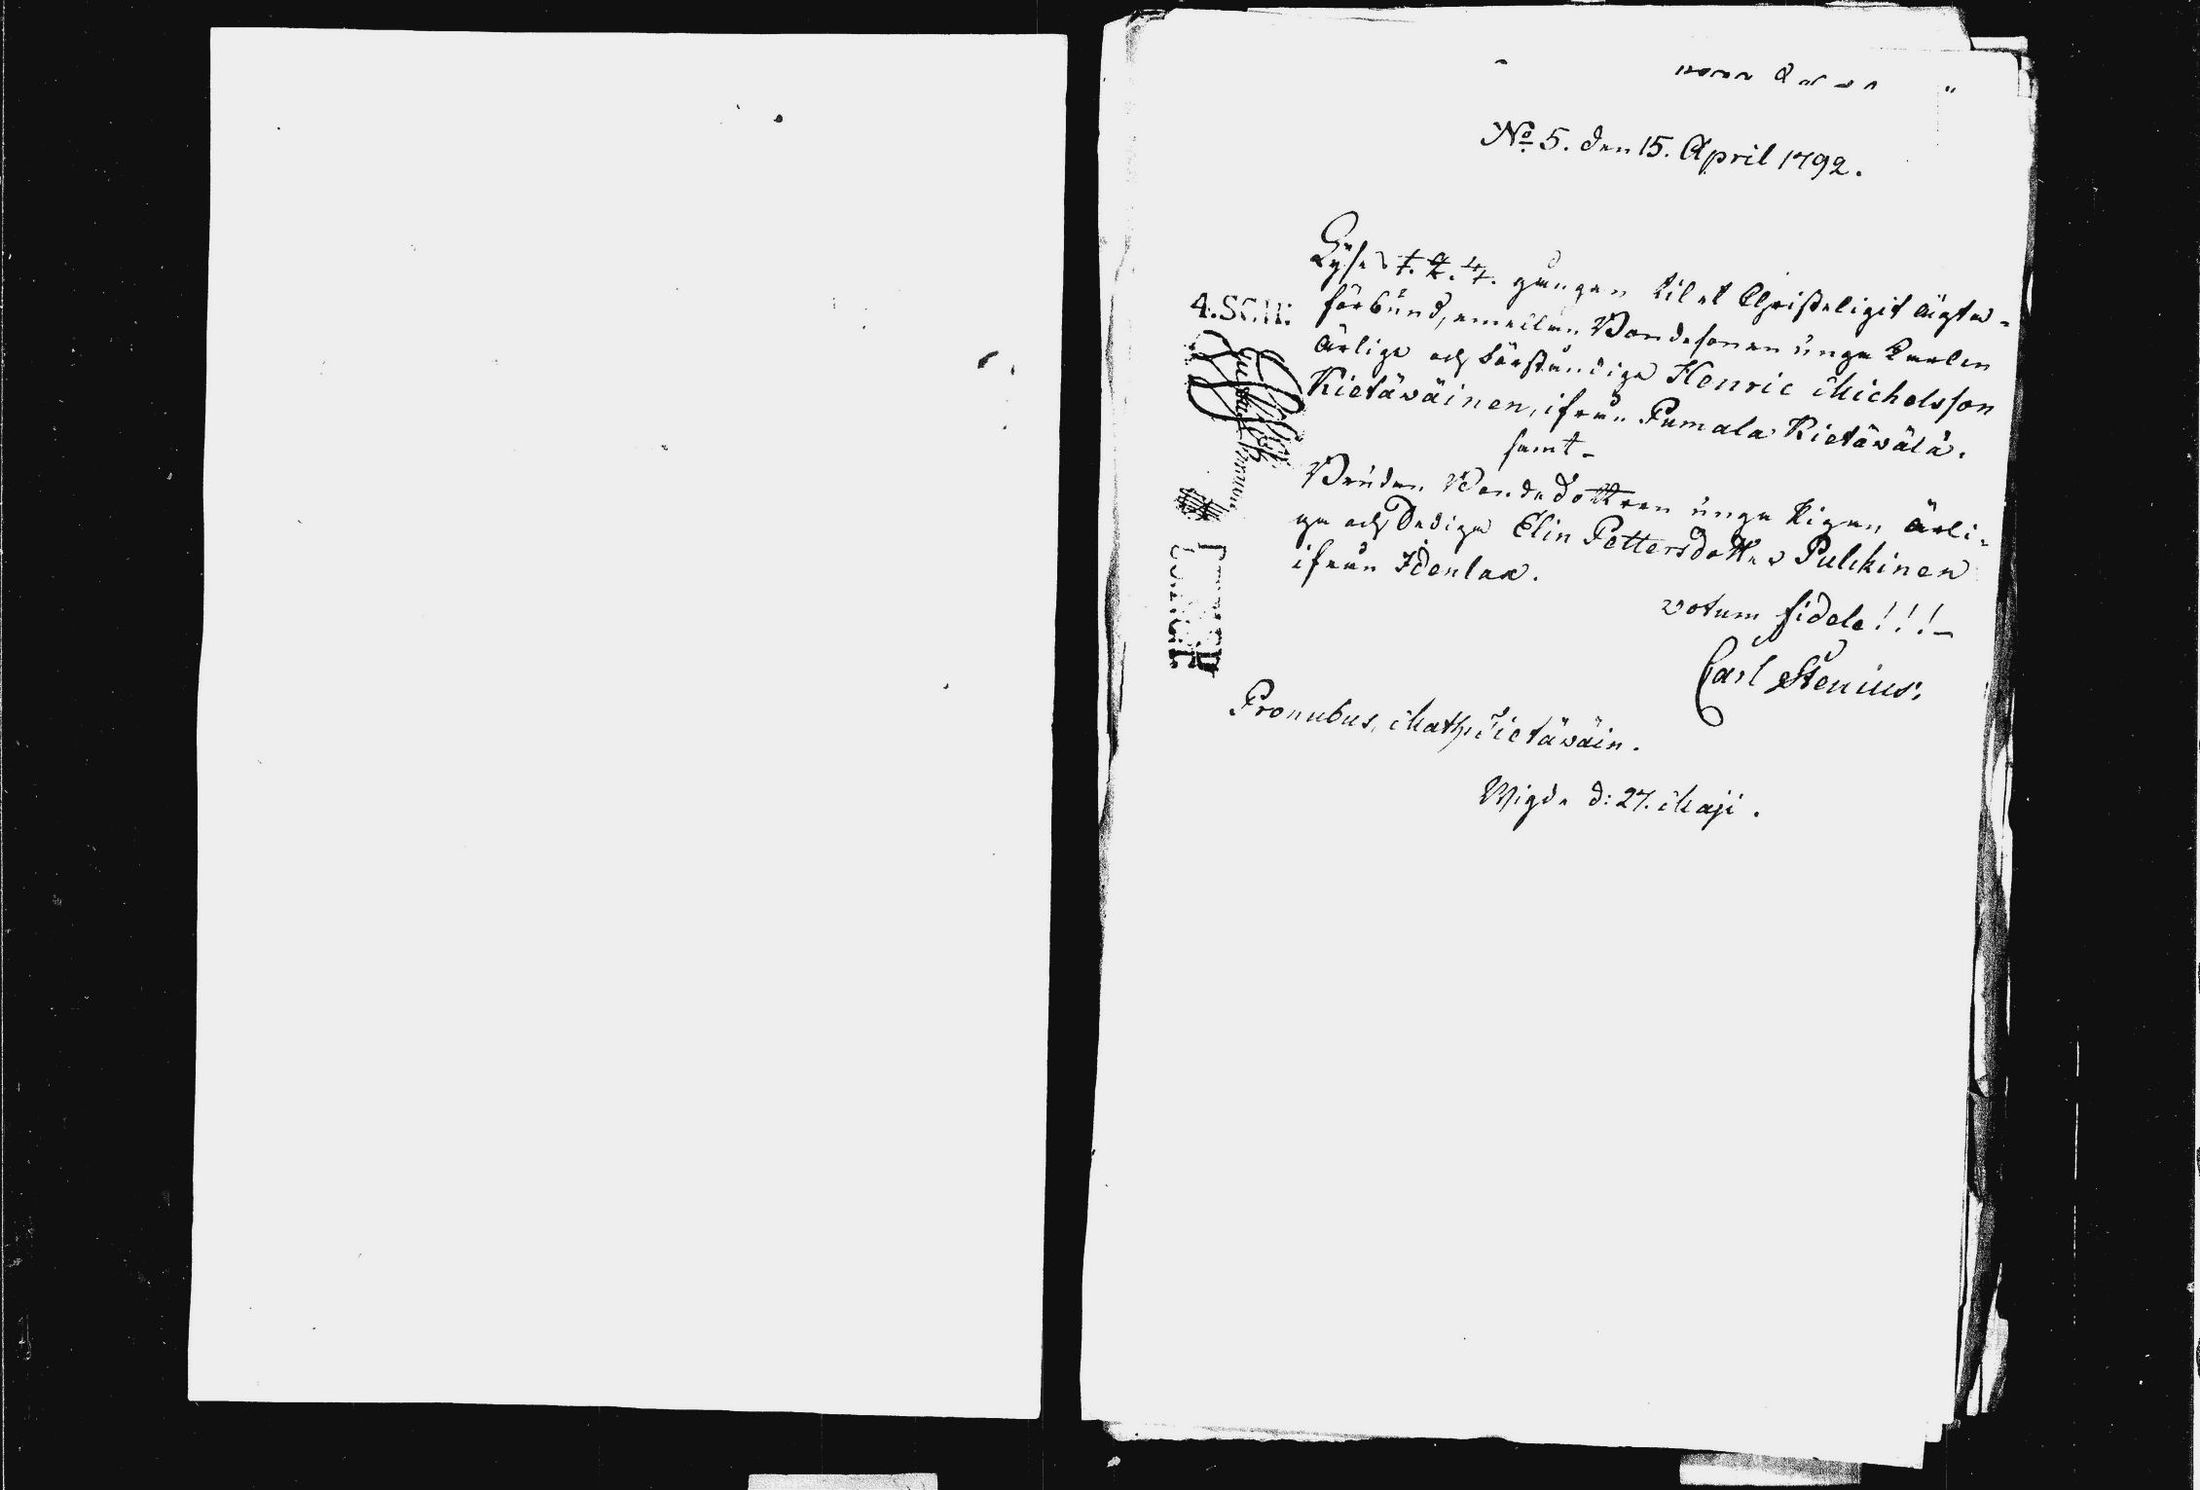 No 5. den 15. April 1792.
Lyses 1. 2. 3. gången til et Christeligit ägta-
förbund, emellan Bondesonen unga Karlen
ärlige och förståndige Henric Michelsson
Kietäwäinen, ifrån Pumala Kietäwälä.
samt
Bruden Bondedottren unga Pigan ärli-
ga och Dediga Elin Pettersdotter Pulckinen
ifrån Idenlax.
votum fidele!!!
Carl Stenius.
Pronubus, Math: Kietäwäin.
Wigde d: 27. Maji.
4. SCH: